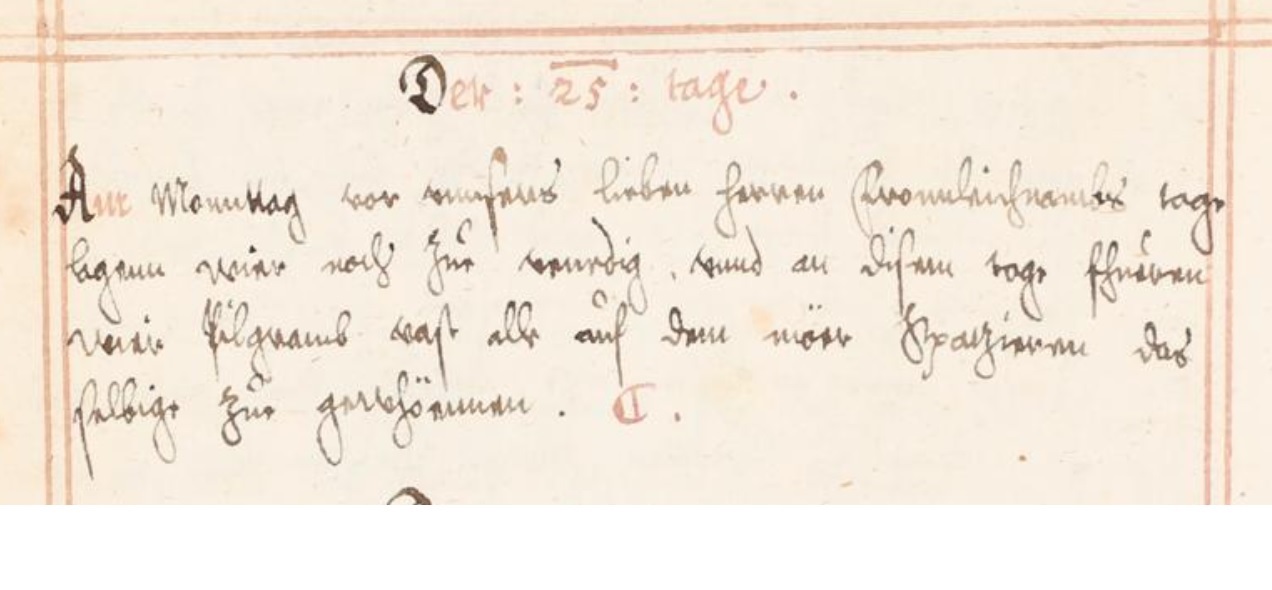 Der : 25 : tage .
Am Monntag vor vnnsers lieben herren Fronnleichnambs tage
lagenn wier noch zue venedig , vnnd an disem tage fhueren
wier Pilgramb vast alle auf dem möer Spatzieren das
selbige zue gewhöennen . C .